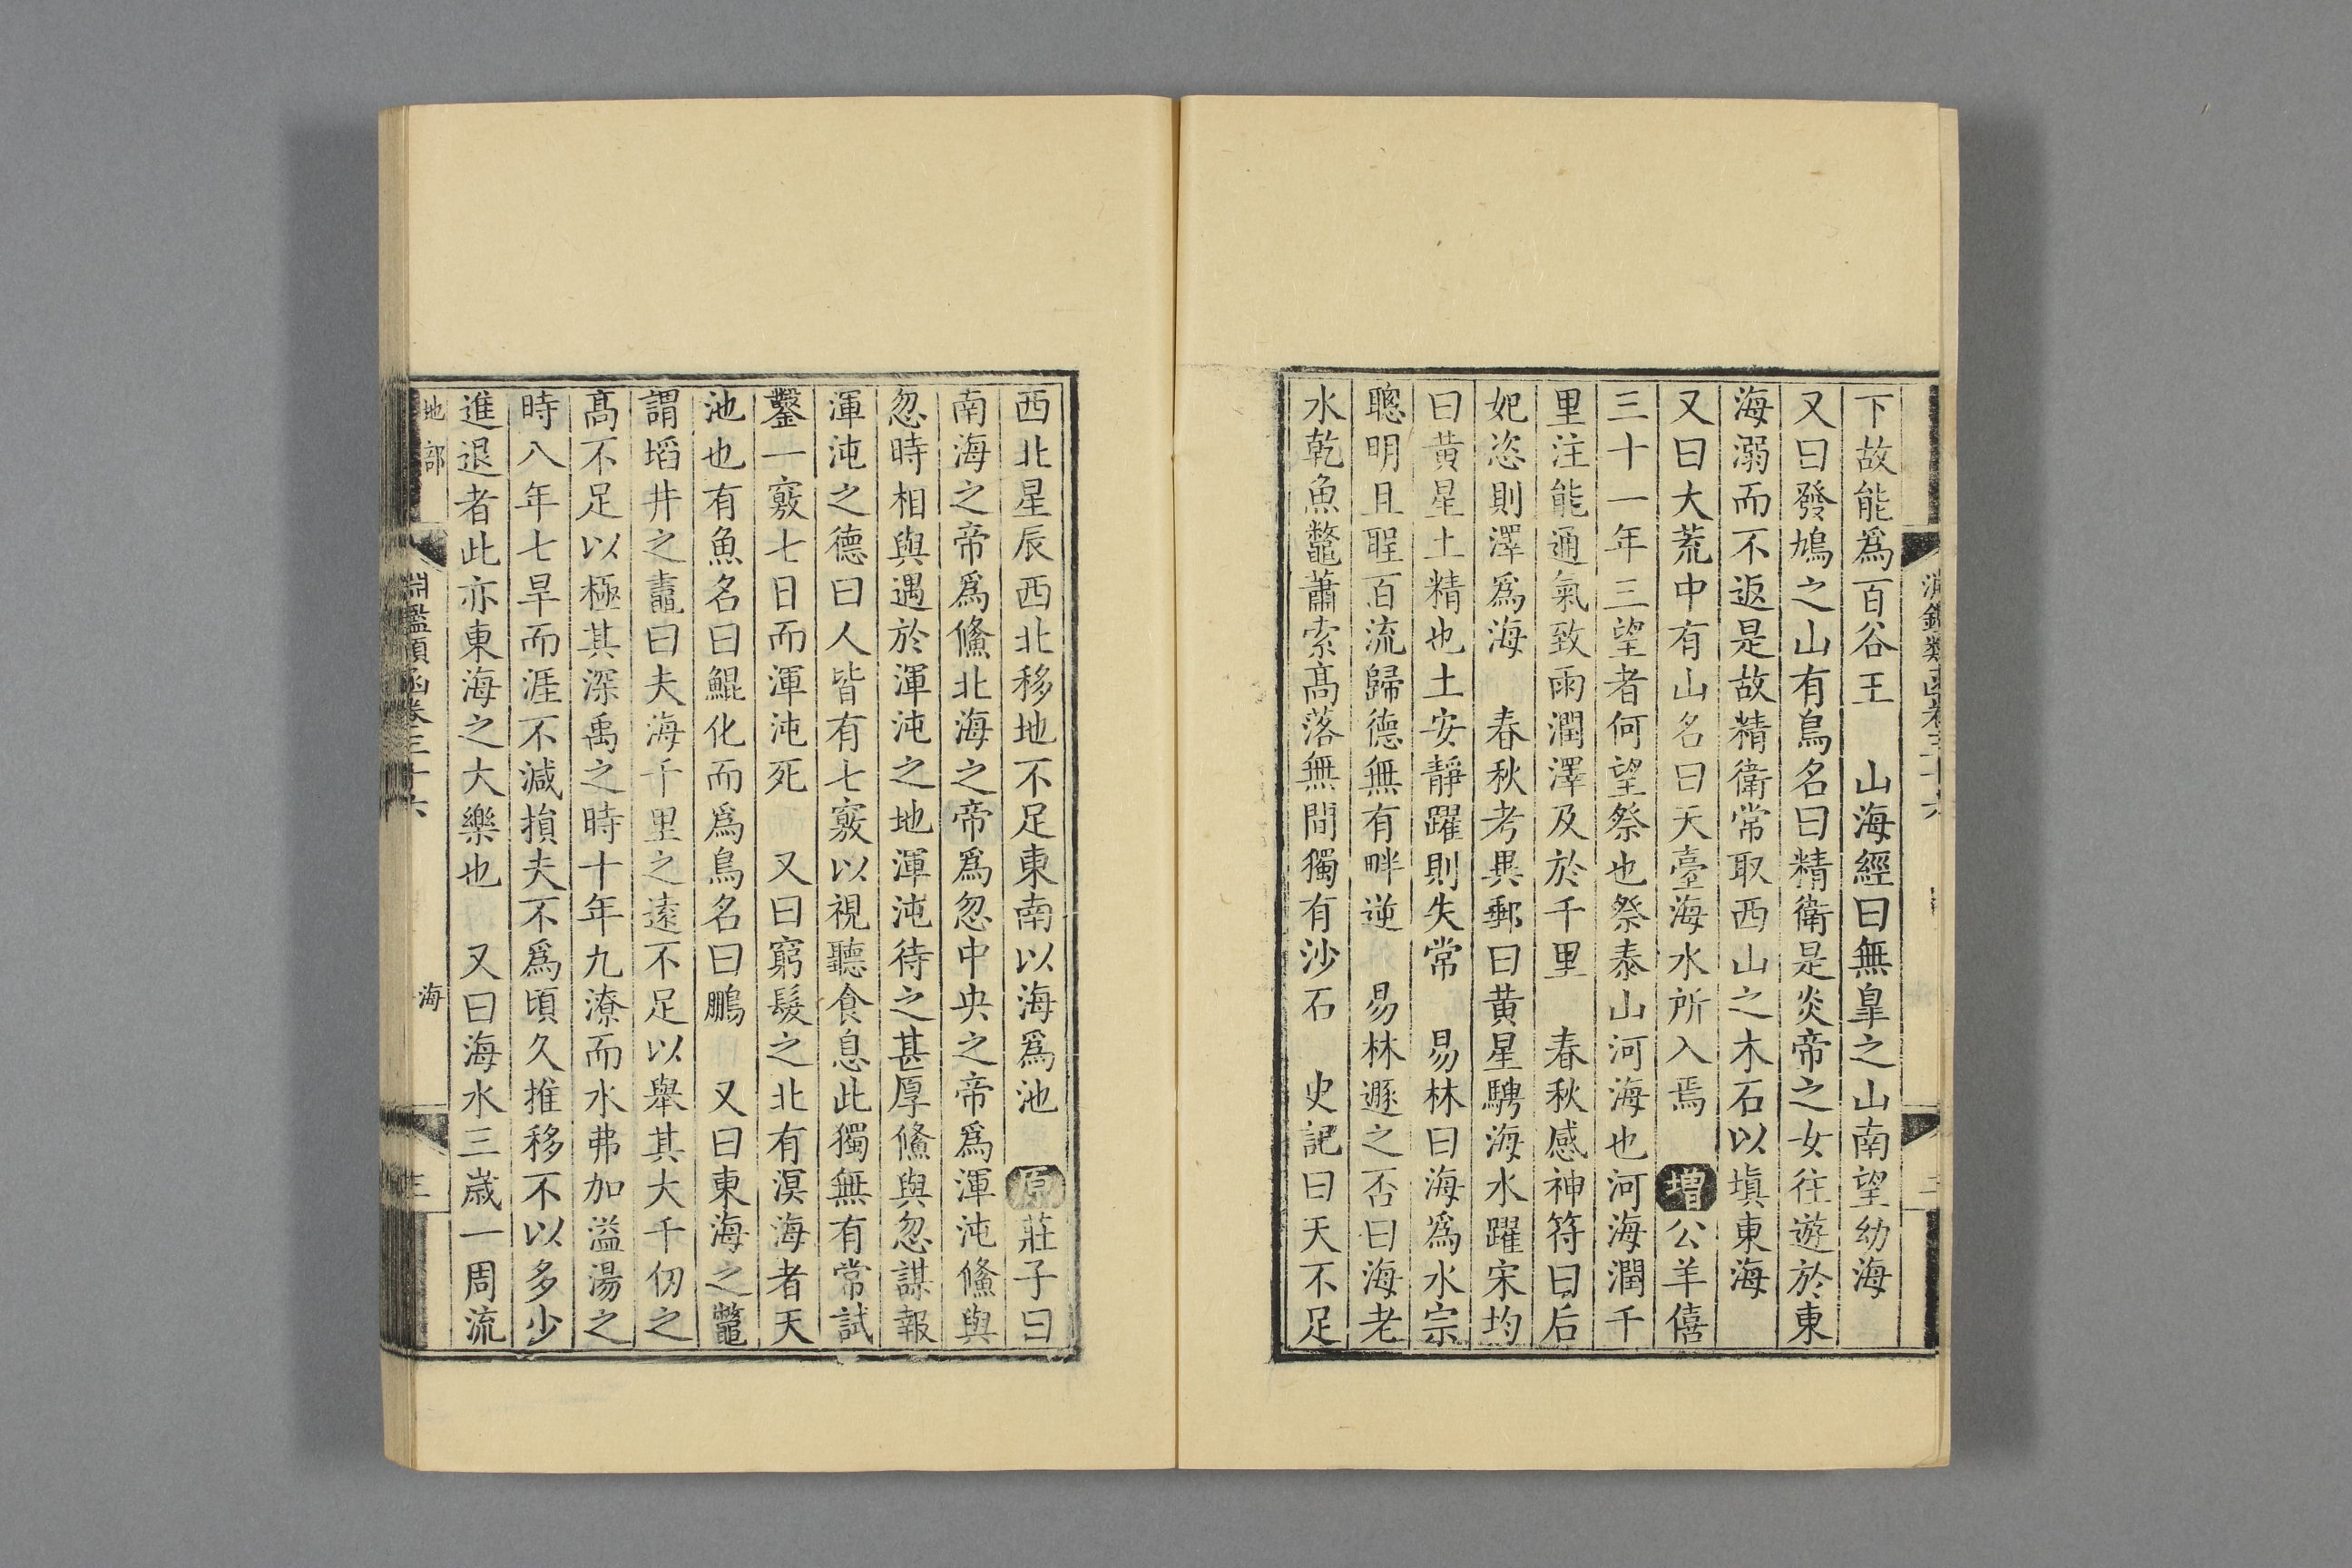 下故能爲百谷王　山海經曰無臯之山南望幼海
又曰發鳩之山有鳥名曰精衛是炎帝之女往遊於東
海溺而不返是故精衛常取西山之木石以塡東海
又曰大荒中有山名曰天臺海水所入焉　增公羊僖
三十一年三望者何望祭也祭泰山河海也河海潤千
里注能通氣致雨潤澤及於千里　春秋感神符曰后
妃恣則澤爲海　春秋考異郵曰黃星騁海水躍宋均
曰黃星土精也土安靜躍則失常　易林曰海爲水宗
聰明且聖百流歸德無有畔逆　易林遯之否曰海老
水乾魚鼈蕭索高落無間獨有沙石　史記曰天不足
西北星辰西北移地不足東南以海爲池　原莊子曰
南海之帝爲儵北海之帝爲忽中央之帝爲渾沌儵與
忽時相與遇於渾沌之地渾沌待之甚厚儵與忽謀報
渾沌之德曰人皆有七竅以視聽食息此獨無有常試
鑿一竅七日而渾沌死　又曰窮髮之北有溟海者天
池也有魚名曰鯤化而爲鳥名曰鵬　又曰東海之鼈
謂埳井之鼃曰夫海千里之遠不足以舉其大千仞之
高不足以極其深禹之時十年九潦而水弗加溢湯之
時八年七旱而涯不減損夫不爲頃久推移不以多少
進退者此亦東海之大樂也　又曰海水三歲一周流
地部　淵鑑類函卷三十六　海　三